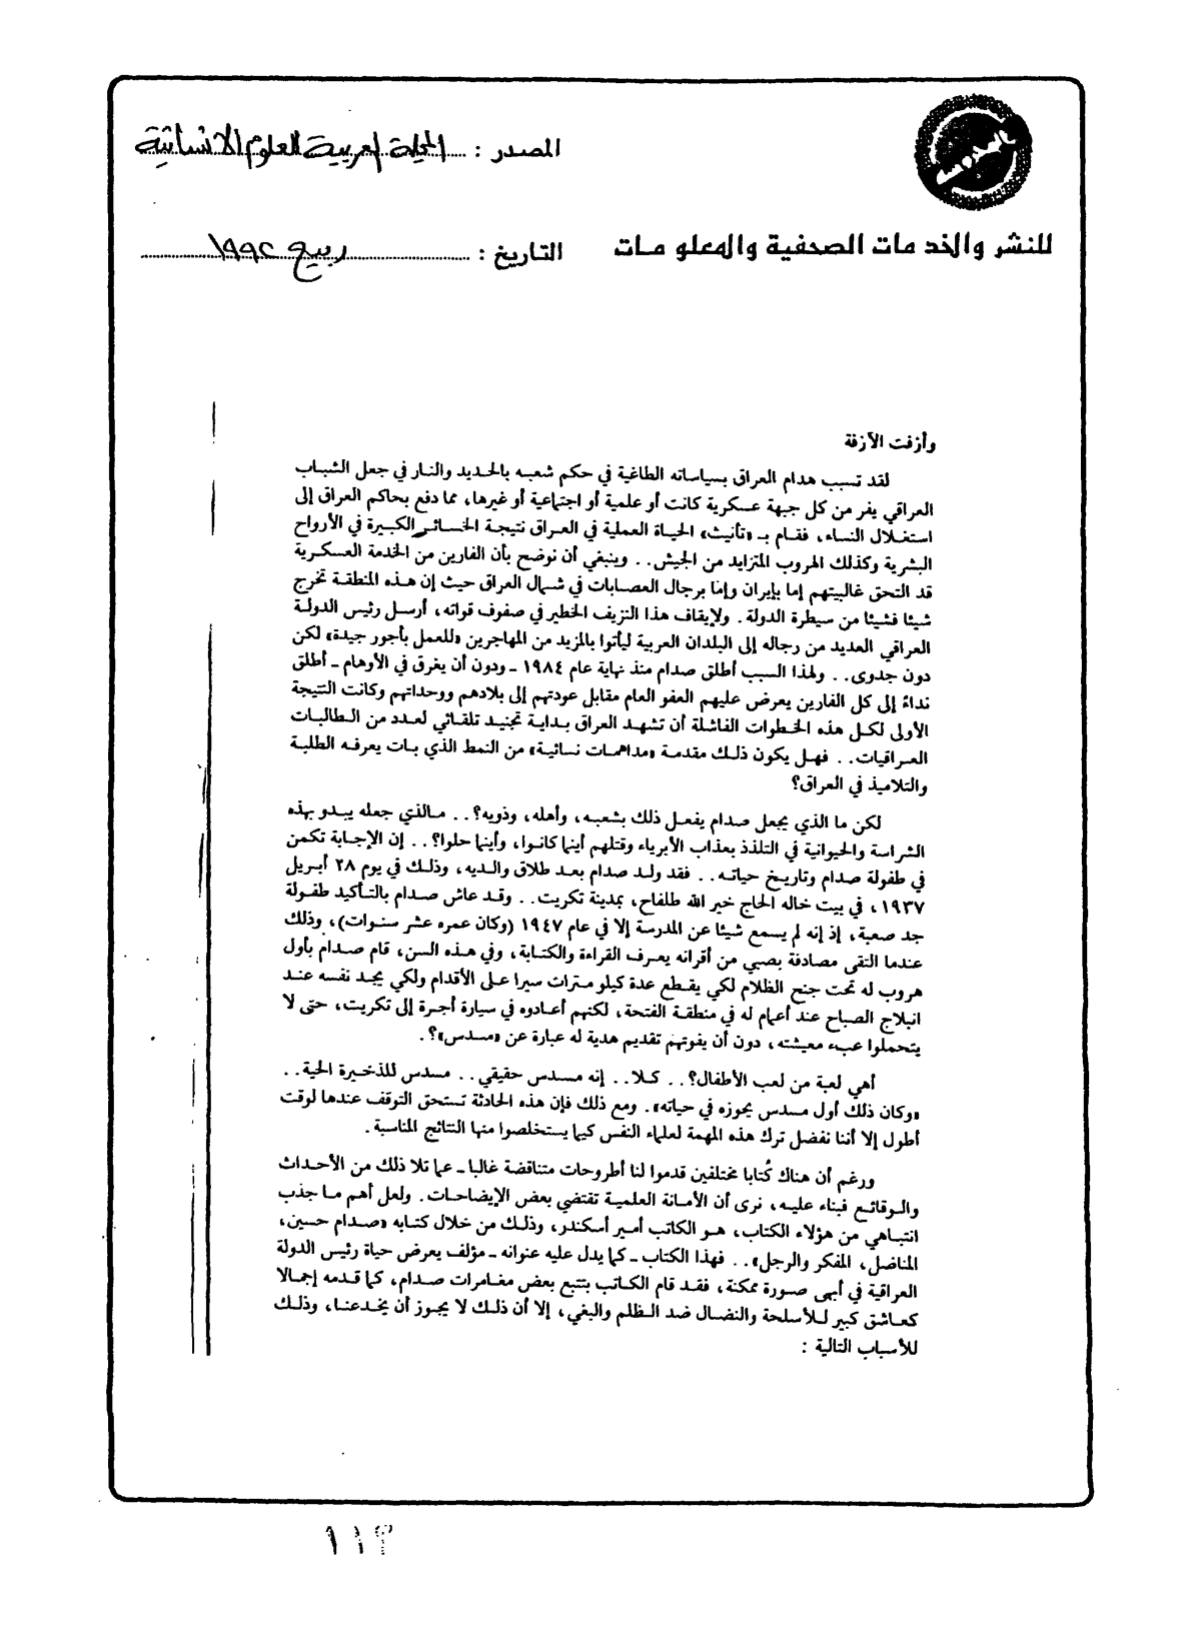 المصدر : المجلة العربية للعلوم الانسانية
للنشر والخدمات الصحفية والمعلومات
التاريخ : ربيع ١٩٩٢
وأزفت الآزفة
لقد تسبب هدام العراق بسياساته الطاغية في حكم شعبه بالحديد والنار في جعل الشباب
العراقي يفر من كل جبهة عسكرية كانت أو علمية أو اجتماعية أو غيرها، مما دفع بحاكم العراق إلى
استغلال النساء، فقام بـ «تأنيث» الحياة العملية في العراق نتيجة الخسائر الكبيرة في الأرواح
البشرية وكذلك الهروب المتزايد من الجيش.. وينبغي أن نوضح بأن الفارين من الخدمة العسكرية
قد التحق غالبيتهم إما بإيران وإما برجال العصابات في شمال العراق حيث إن هذه المنطقة تخرج
شيئا فشيئا من سيطرة الدولة. ولإيقاف هذا النزيف الخطير في صفوف قواته، أرسل رئيس الدولة
العراقي العديد من رجاله إلى البلدان العربية ليأتوا بالمزيد من المهاجرين «للعمل بأجور جيدة» لكن
دون جدوى.. ولهذا السبب أطلق صدام منذ نهاية عام ١٩٨٤ ـ ودون أن يغرق في الأوهام ـ أطلق
نداءً إلى كل الفارين يعرض عليهم العفو العام مقابل عودتهم إلى بلادهم ووحداتهم وكانت النتيجة
الأولى لكل هذه الخطوات الفاشلة أن تشهد العراق بداية تجنيد تلقائي لعدد من الطالبات
العراقيات.. فهل يكون ذلك مقدمة «مداهمات نسائية» من النمط الذي بات يعرفه الطلبة
والتلاميذ في العراق؟
لكن ما الذي يجعل صدام يفعل ذلك بشعبه، وأهله، وذويه؟.. مالذي جعله يبدو بهذه
الشراسة والحيوانية في التلذذ بعذاب الأبرياء وقتلهم أينما كانوا، وأينما حلوا؟.. إن الإجابة تكمن
في طفولة صدام وتاريخ حياته.. فقد ولد صدام بعد طلاق والديه، وذلك في يوم ٢٨ أبريل
١٩٣٧، في بيت خاله الحاج خير الله طلفاح، بمدينة تكريت.. وقد عاش صدام بالتأكيد طفولة
جد صعبة، إذ إنه لم يسمع شيئا عن المدرسة إلا في عام ١٩٤٧ (وكان عمره عشر سنوات)، وذلك
عندما التقى مصادفة بصبي من أقرانه يعرف القراءة والكتابة، وفي هذه السن، قام صدام بأول
هروب له تحت جنح الظلام لكي يقطع عدة كيلو مترات سيرا على الأقدام ولكي يجد نفسه عند
انبلاج الصباح عند أعمام له في منطقة الفتحة، لكنهم أعادوه في سيارة أجرة إلى تكريت، حتى لا
يتحملوا عبء معيشته، دون أن يفوتهم تقديم هدية له عبارة عن «مسدس»؟.
أهي لعبة من لعب الأطفال؟.. كلا.. إنه مسدس حقيقي.. مسدس للذخيرة الحية..
«وكان ذلك أول مسدس يحوزه في حياته». ومع ذلك فإن هذه الحادثة تستحق التوقف عندها لوقت
أطول إلا أننا نفضل ترك هذه المهمة لعلماء النفس كيما يستخلصوا منها النتائج المناسبة.
ورغم أن هناك كُتابا مختلفين قدموا لنا أطروحات متناقضة غالبا ـ عما تلا ذلك من الأحداث
والوقائع فبناء عليه، نرى أن الأمانة العلمية تقتضي بعض الإيضاحات. ولعل أهم ما جذب
انتباهي من هؤلاء الكتاب، هو الكاتب أمير أسكندر، وذلك من خلال كتابه «صدام حسين،
المناضل، المفكر والرجل».. فهذا الكتاب ـ كما يدل عليه عنوانه ـ مؤلف يعرض حياة رئيس الدولة
العراقية في أبهى صورة ممكنة، فقد قام الكاتب بتتبع بعض مغامرات صدام، كما قدمه إجمالا
كعاشق كبير للأسلحة والنضال ضد الظلم والبغي، إلا أن ذلك لا يجوز أن يخدعنا، وذلك
للأسباب التالية :